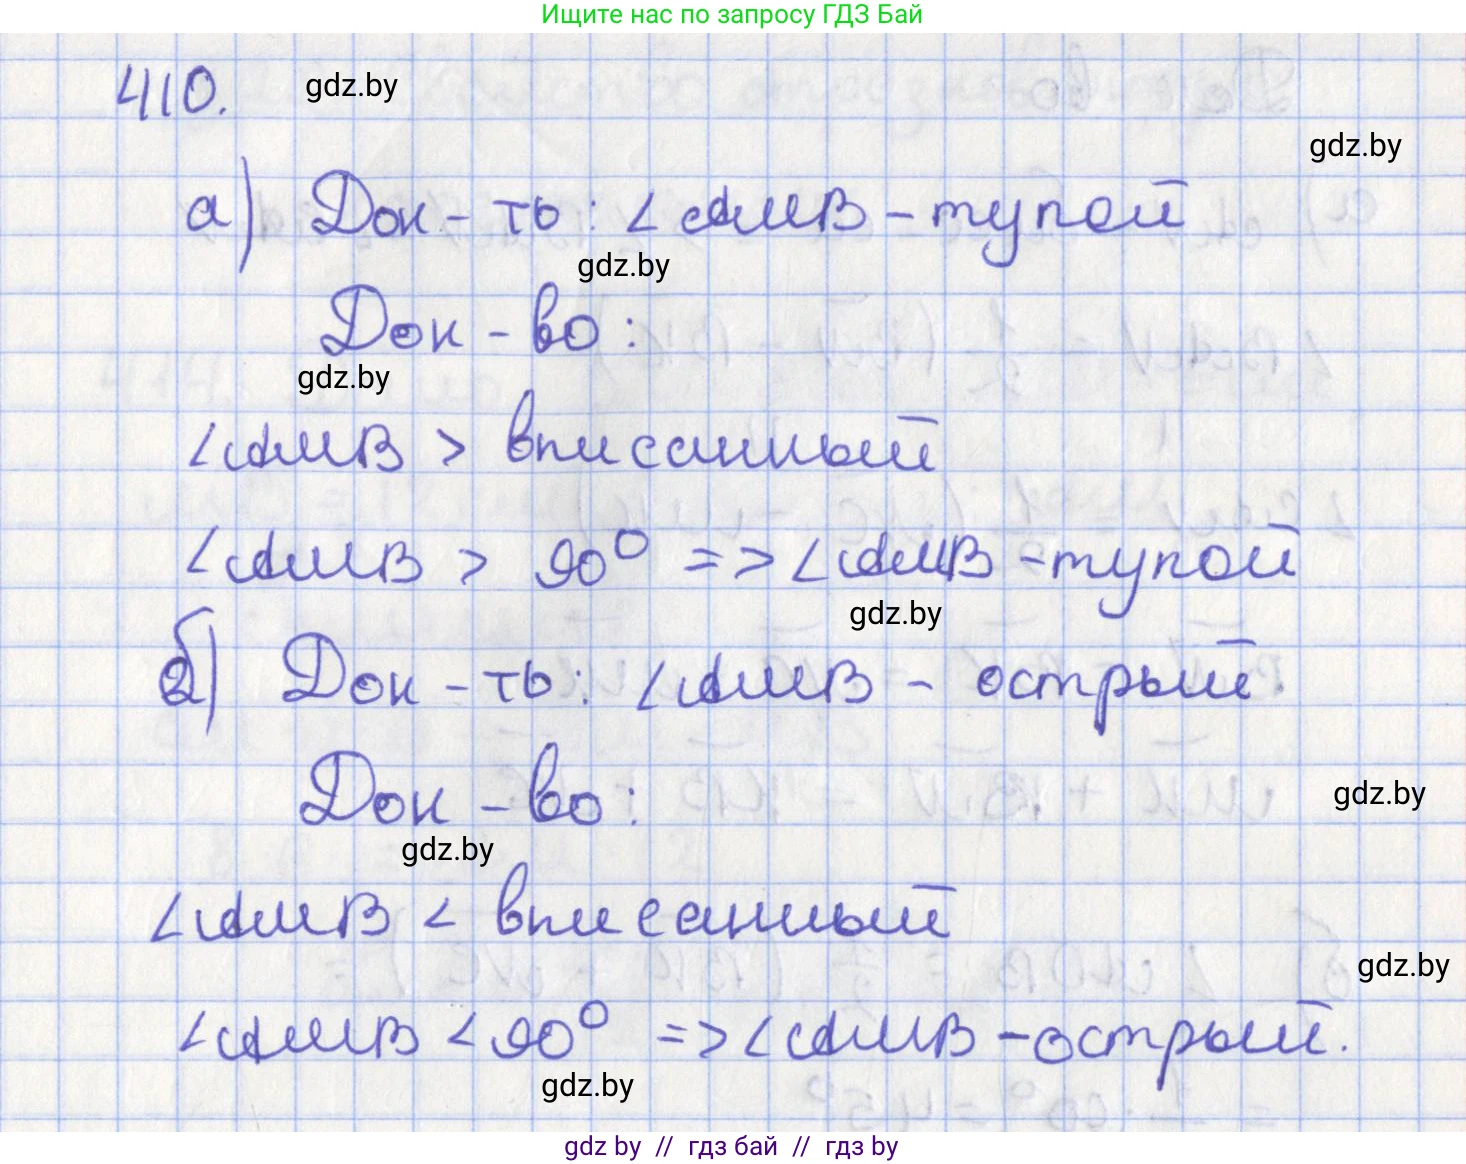 Ищите нас по запросу ГДЗ Бай
410.
gdz.by
gdz.by
а) Док-ть: ∠AMB - тупой
gdz.by
Док-во:
gdz.by
∠AMB > вписанный
∠AMB > 90° => ∠AMB - тупой
gdz.by
б) Док-ть: ∠AMB - острый
Док-во:
gdz.by
gdz.by
∠AMB < вписанный
gdz.by
∠AMB < 90° => ∠AMB - острый.
gdz.by
gdz by // гдз бай // гдз by